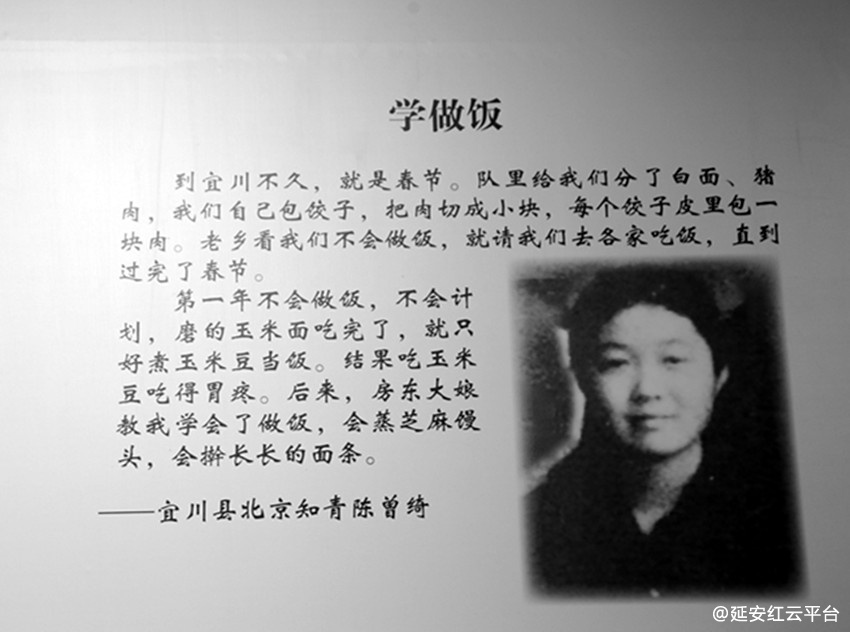 学做饭
到宜川不久，就是春节。队里给我们分了白面、猪
肉，我们自己包饺子，把肉切成小块，每个饺子皮里包一
块肉。老乡看我们不会做饭，就请我们去各家吃饭，直到
过完了春节。
第一年不会做饭，不会计
划，磨的玉米面吃完了，就只
好煮玉米豆当饭。结果吃玉米
豆吃得胃疼。后来，房东大娘
教我学会了做饭，会蒸芝麻馒
头，会擀长长的面条。
——宜川县北京知青陈曾绮
@延安红云平台